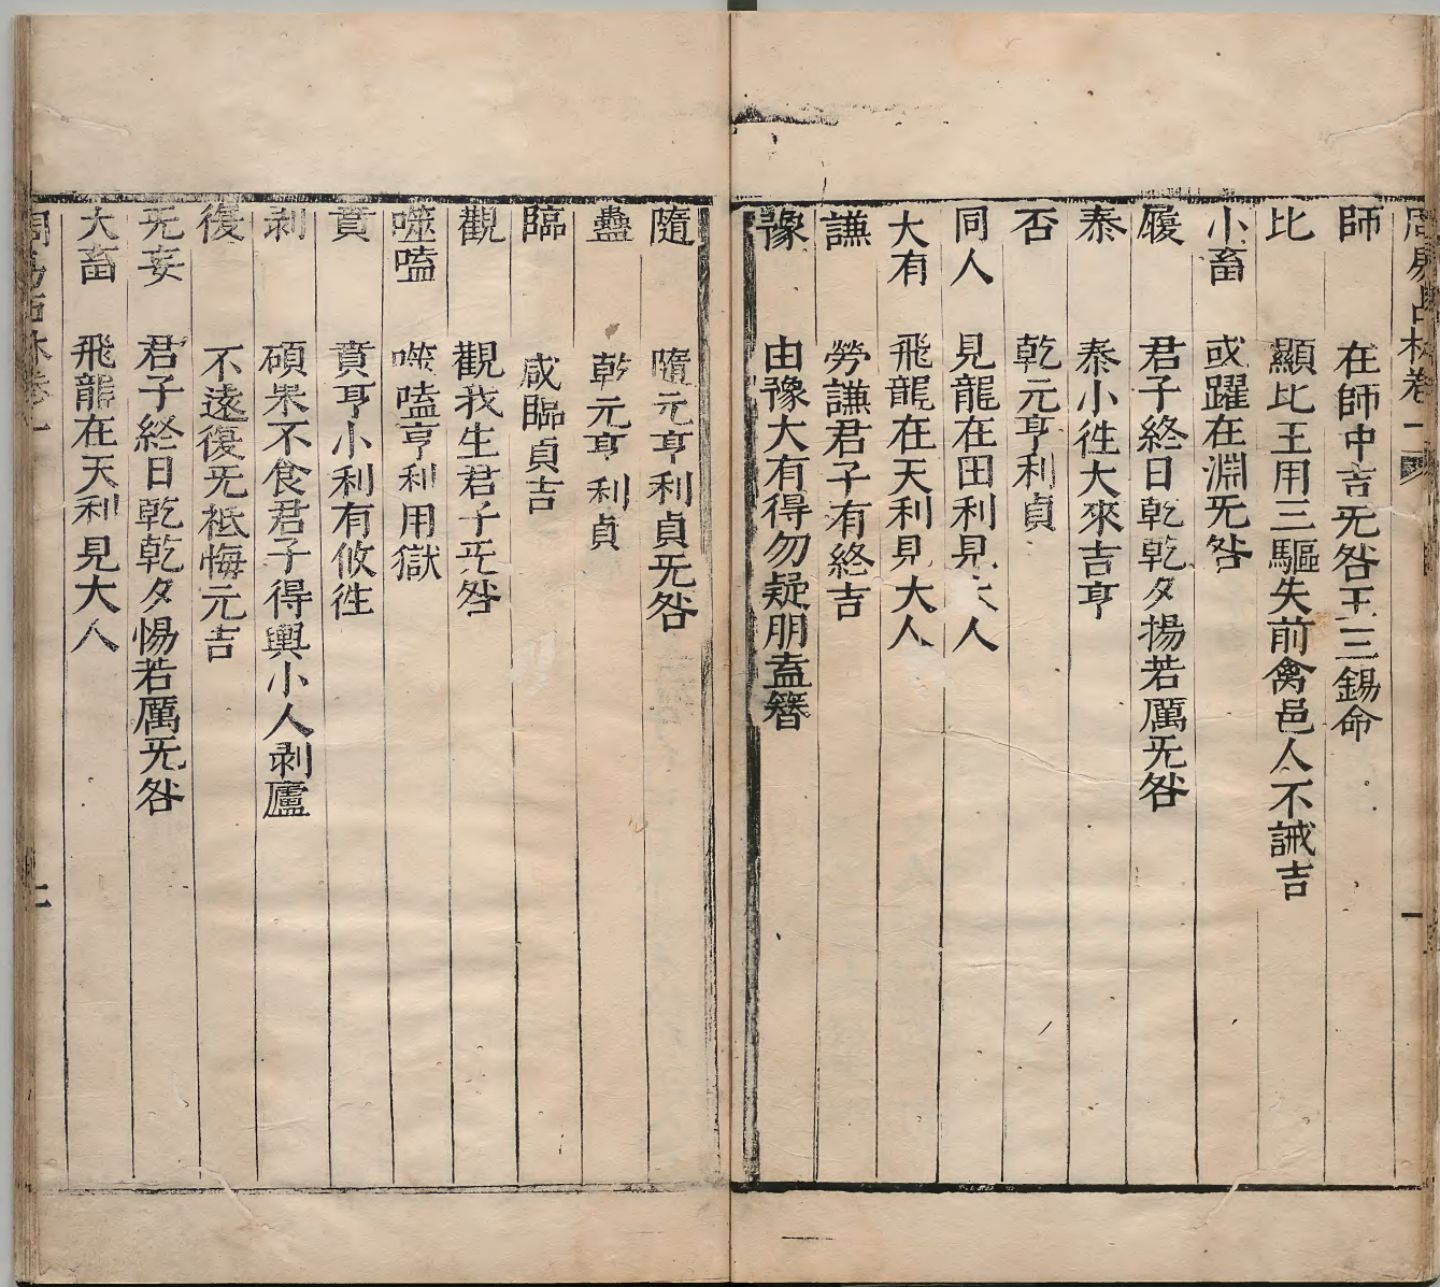 周易占林卷二 一
師 在師中吉旡咎王三錫命
比 顯比王用三驅失前禽邑人不誡吉
小畜 或躍在淵旡咎
履 君子終日乾乾夕揚若厲旡咎
泰 泰小徃大來吉亨
否 乾元亨利貞
同人 見龍在田利見大人
大有 飛龍在天利見大人
謙 勞謙君子有終吉
豫 由豫大有得勿疑朋盍簪
隨 隨元亨利貞旡咎
蠱 乾元亨利貞
臨 咸臨貞吉
觀 觀我生君子旡咎
噬嗑 噬嗑亨利用獄
賁 賁亨小利有攸徃
剥 碩果不食君子得輿小人剥廬
復 不遠復旡袛悔元吉
旡妄 君子終日乾乾夕惕若厲旡咎
大畜 飛龍在天利見大人